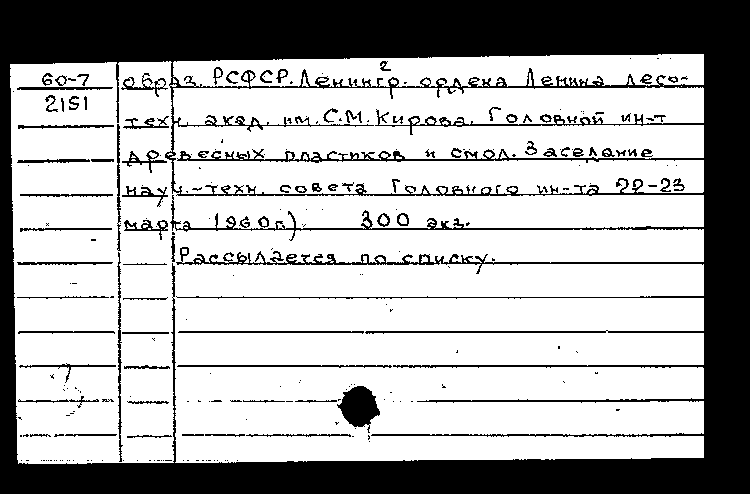 2
60-7 образ. РСФСР. Ленингр. ордена Ленина лесо-
2151
техн. акад. им. С.М. Кирова. Головной ин-т
древесных пластиков и смол. Заседание
науч.-техн. совета Головного ин-та 22-23
марта 1960г.) 300 экз.
Рассылается по списку.
3